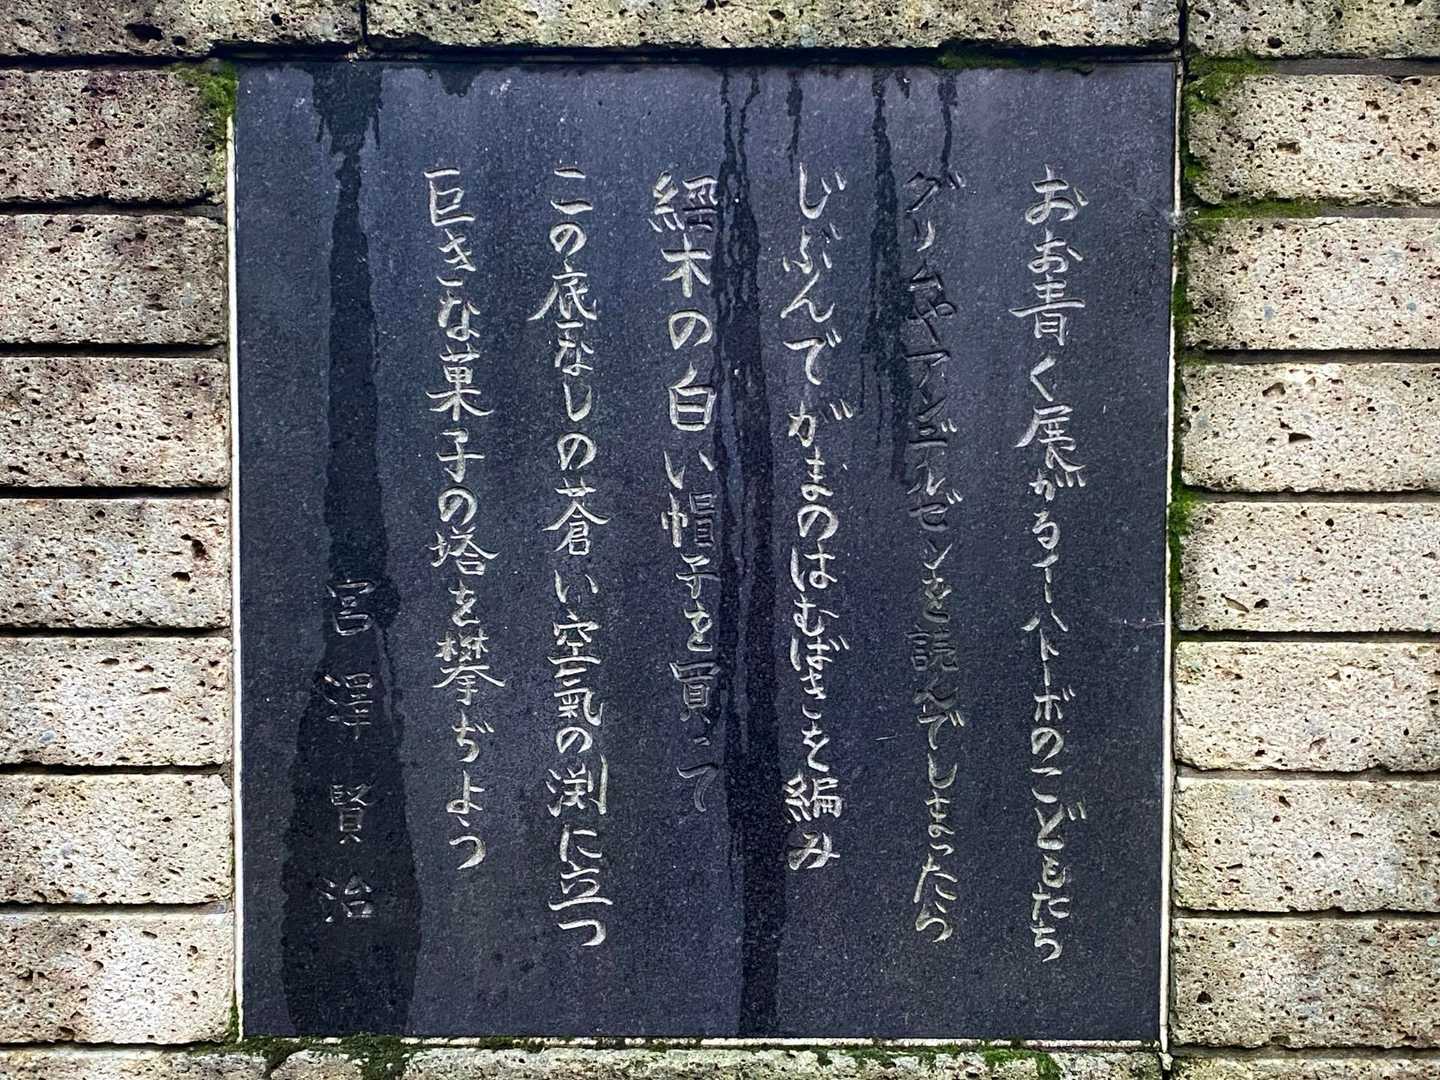 おお青く展がるイーハトーボのこどもたち
グリムやアンデルゼンを読んでしまったら
じぶんでがまのはむばきを編み
經木の白い帽子を買って
この底なしの蒼い空氣の渕に立つ
巨きな菓子の塔を攀ぢよう
宮澤賢治